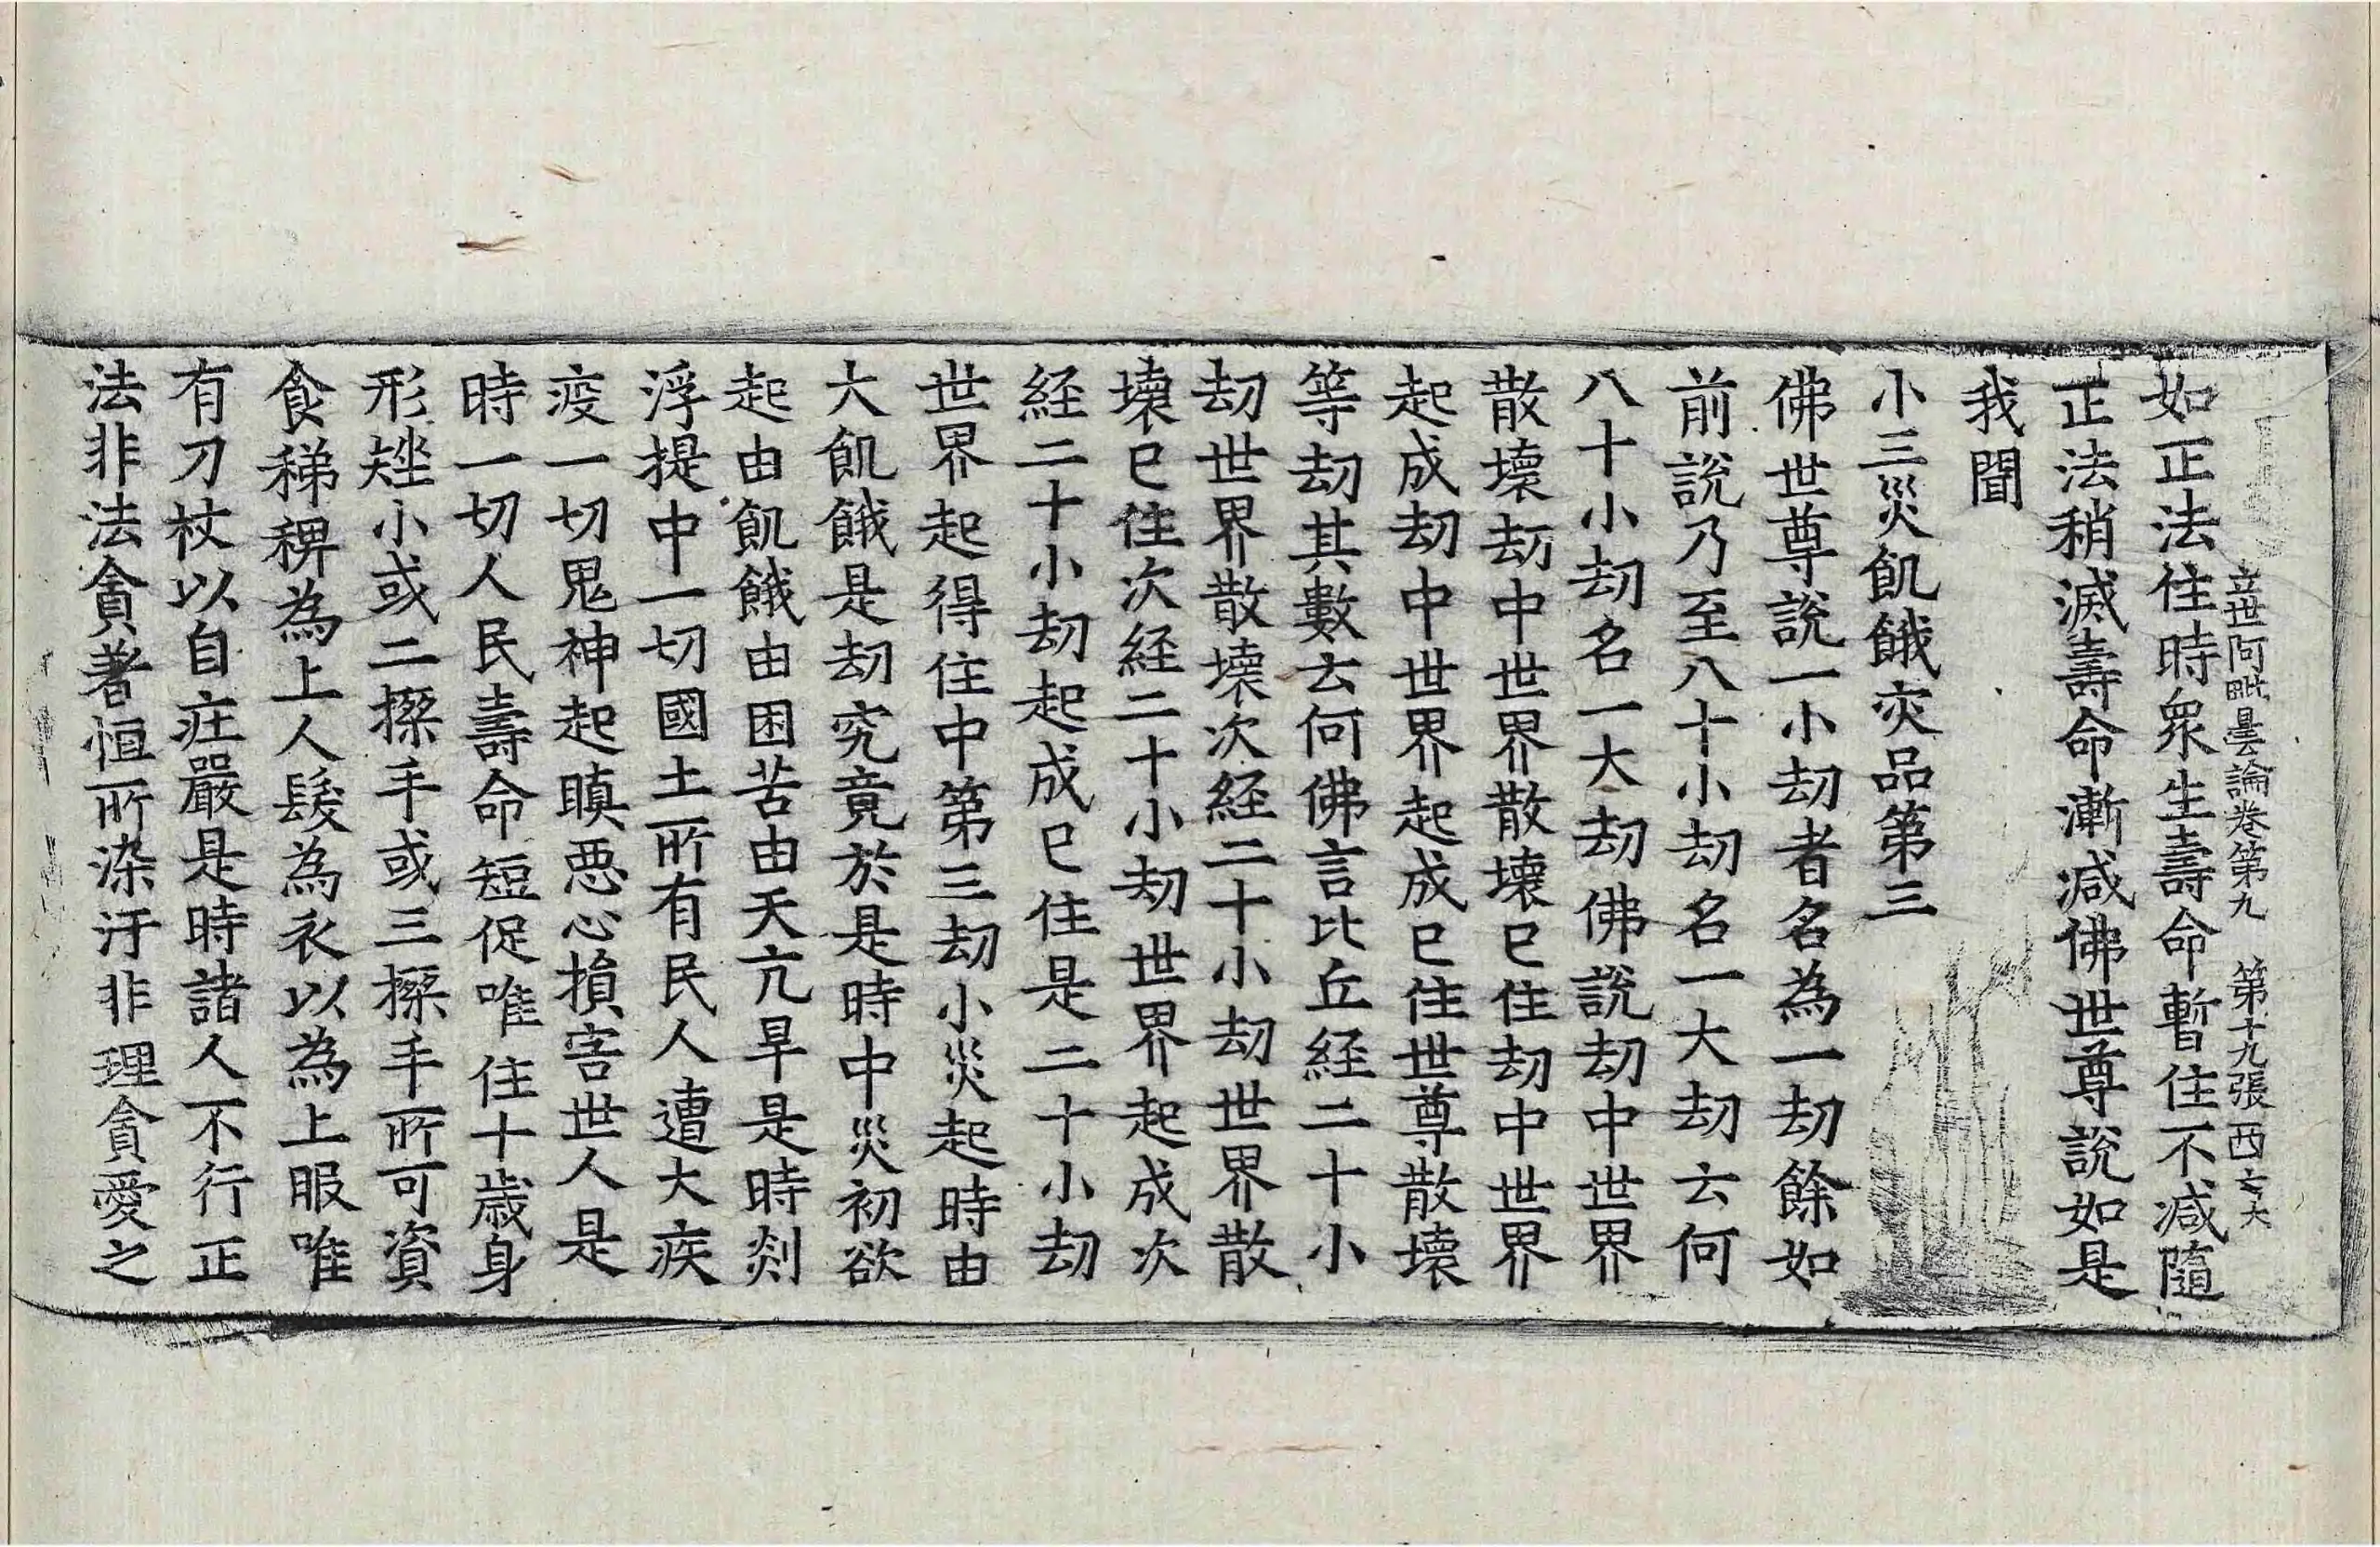 立世阿毗曇論卷第九　第十九張　西
如正法住時衆生壽命暫住不減隨
正法稍滅壽命漸減佛世尊說如是
我聞
小三災飢餓灾品第三
佛世尊說一小劫者名為一劫餘如
前說乃至八十小劫名一大劫云何
八十小劫名一大劫佛說劫中世界
散壞劫中世界散壞已住劫中世界
起成劫中世界起成已住世尊散壞
等劫其數云何佛言比丘経二十小
劫世界散壞次経二十小劫世界散
壞已住次経二十小劫世界起成次
経二十小劫起成已住是二十小劫
世界起得住中第三劫小災起時由
大飢餓是劫究竟於是時中災初欲
起由飢餓由困苦由天亢旱是時剡
浮提中一切國土所有民人遭大疾
疫一切鬼神起瞋惡心損害世人是
時一切人民壽命短促唯住十歲身
形矬小或二搩手或三搩手所可資
食稊稗為上人髮為衣以為上服唯
有刀杖以自庄嚴是時諸人不行正
法非法貪著恒所染汙非理貪愛之